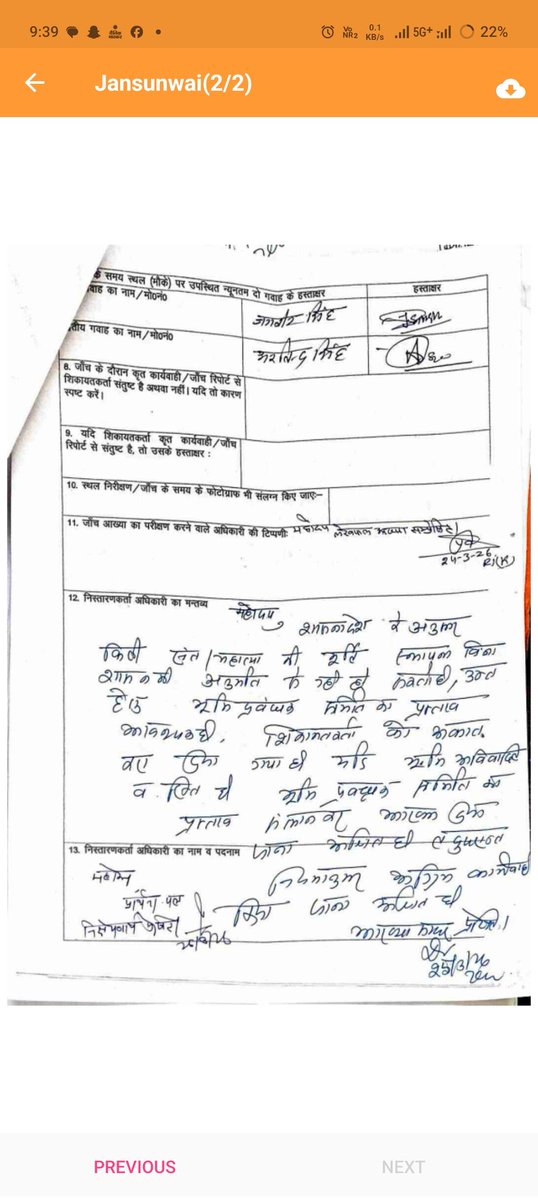 9:39
Vo NR2
0.1 KB/s
5G+
22%
Jansunwai(2/2)
के समय स्थल (मौके) पर उपस्थित न्यूनतम दो गवाह के हस्ताक्षर
वाह का नाम/मो0नं0
हस्ताक्षर
सिंह
तीय गवाह का नाम/मो0नं0
अरविन्द सिंह
8. जाँच के दौरान कृत कार्यवाही/जाँच रिपोर्ट से
शिकायतकर्ता संतुष्ट है अथवा नहीं। यदि तो कारण
स्पष्ट करें।
9. यदि शिकायतकर्ता कृत कार्यवाही/जाँच
रिपोर्ट से संतुष्ट है, तो उसके हस्ताक्षर :
10. स्थल निरीक्षण/जाँच के समय के फोटोग्राफ भी संलग्न किए जाएः-
11. जाँच आख्या का परीक्षण करने वाले अधिकारी की टिप्पणीः महोदय लेखपाल आख्या
24-3-26
RI(K)
12. निस्तारणकर्ता अधिकारी का मन्तव्य महोदय,
शासनादेश के अनुसार
किसी संत/महात्मा की मूर्ति स्थापना बिना
शासन की अनुमति के नही हो सकती है, उक्त
हेतु भूमि प्रबंधक समिति का प्रस्ताव
आवश्यक है, शिकायतकर्ता को अवगत
करा दिया गया है यदि भूमि अविवादित
व रिक्त है भूमि प्रबन्धक समिति का
प्रस्ताव आख्या
13. निस्तारणकर्ता अधिकारी का नाम व पदनाम जाना
नियमानुसार अग्रिम कार्यवाही
महोदय
प्रार्थना पत्र
किया जाना है
आख्या सादर प्रेषित।
PREVIOUS
NEXT